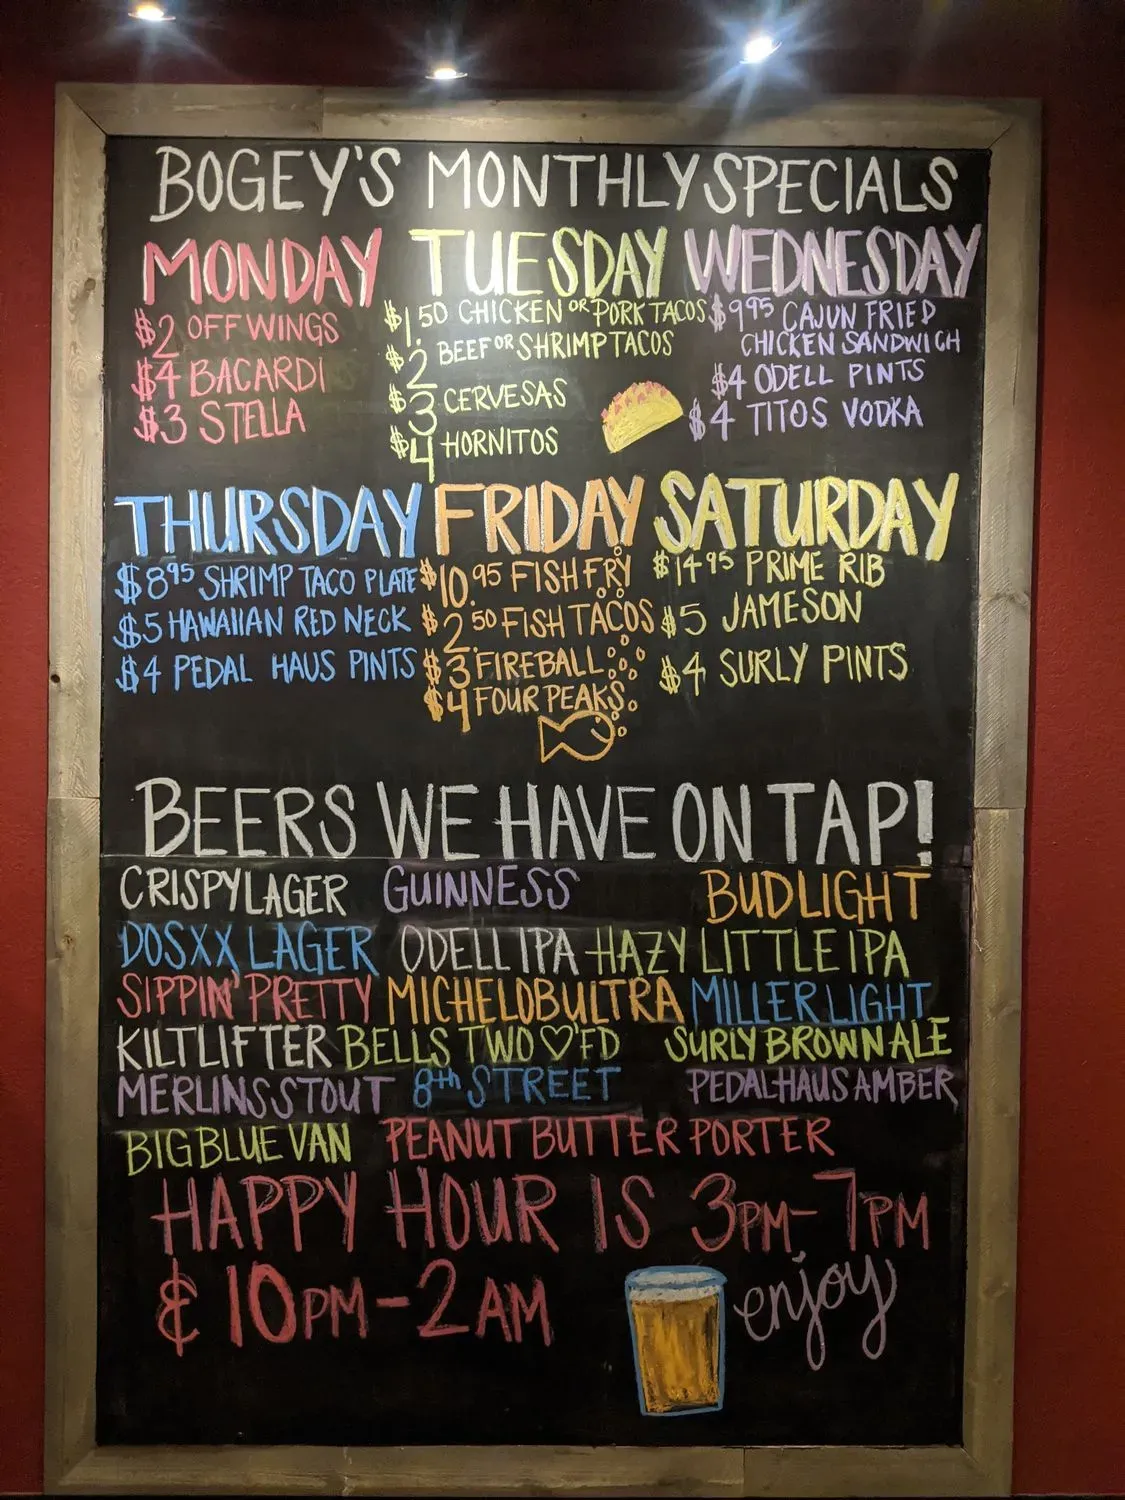 BOGEY'S MONTHLY SPECIALS
MONDAY
$2 OFF WINGS
$4 BACARDI
$3 STELLA
TUESDAY
$1.50 CHICKEN OR PORK TACOS
$2 BEEF OR SHRIMP TACOS
$3 CERVESAS
$4 HORNITOS
WEDNESDAY
$9.95 CAJUN FRIED
CHICKEN SANDWICH
$4 ODELL PINTS
$4 TITOS VODKA
THURSDAY
$8.95 SHRIMP TACO PLATE
$5 HAWAIIAN RED NECK
$4 PEDAL HAUS PINTS
FRIDAY
$10.95 FISH FRY
$2.50 FISH TACOS
$3 FIREBALL
$4 FOUR PEAKS
SATURDAY
$14.95 PRIME RIB
$5 JAMESON
$4 SURLY PINTS
BEERS WE HAVE ON TAP!
CRISPY LAGER GUINNESS BUDLIGHT
DOSXX LAGER ODELL IPA HAZY LITTLE IPA
SIPPIN' PRETTY MICHELOB ULTRA MILLER LIGHT
KILTLIFTER BELLS TWO ♡'FD SURLY BROWN ALE
MERLINS STOUT 8th STREET PEDALHAUS AMBER
BIG BLUE VAN PEANUT BUTTER PORTER
HAPPY HOUR IS 3PM-7PM
& 10PM-2AM
enjoy